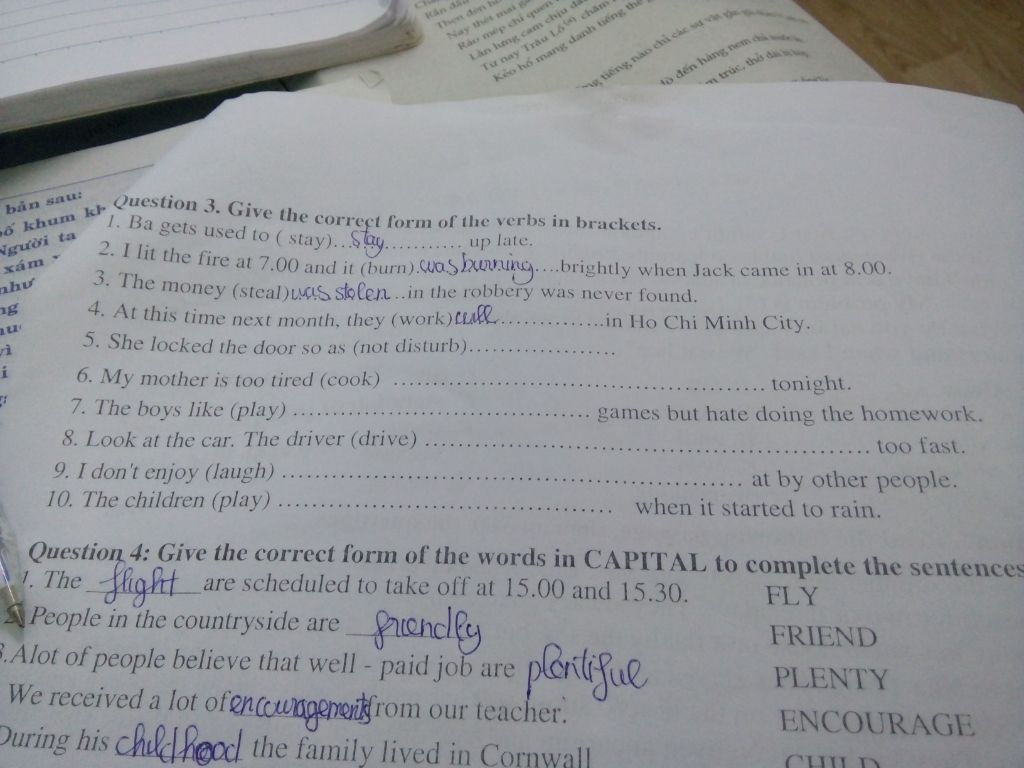 Rận đầu
Thẹn đèn h
Nay thét mai g
Ráo mép chỉ quen
Lằn lưng cam chịu dấ
Từ nay Trâu Lỗ
Kẻo hổ mang danh tiếng
tiếng nào chỉ các sự vật gần
đến hàng nem
bản sau:
ố khum kh
Người ta
xám
như
Question 3. Give the correct form of the verbs in brackets.
1. Ba gets used to ( stay)...stay............ up late.
2. I lit the fire at 7.00 and it (burn).was burning....brightly when Jack came in at 8.00.
3. The money (steal)was stolen...in the robbery was never found.
4. At this time next month, they (work)will...............in Ho Chi Minh City.
5. She locked the door so as (not disturb)......................
6. My mother is too tired (cook) ........................................................ tonight.
7. The boys like (play) ............................................. games but hate doing the homework.
8. Look at the car. The driver (drive) .................................................................. too fast.
9. I don't enjoy (laugh) .................................................................. at by other people.
10. The children (play) .................................................. when it started to rain.
Question 4: Give the correct form of the words in CAPITAL to complete the sentences
1. The flight are scheduled to take off at 15.00 and 15.30. FLY
2. People in the countryside are friendly FRIEND
3.Alot of people believe that well - paid job are plentiful PLENTY
We received a lot of encouragements from our teacher. ENCOURAGE
During his childhood the family lived in Cornwall CHILD